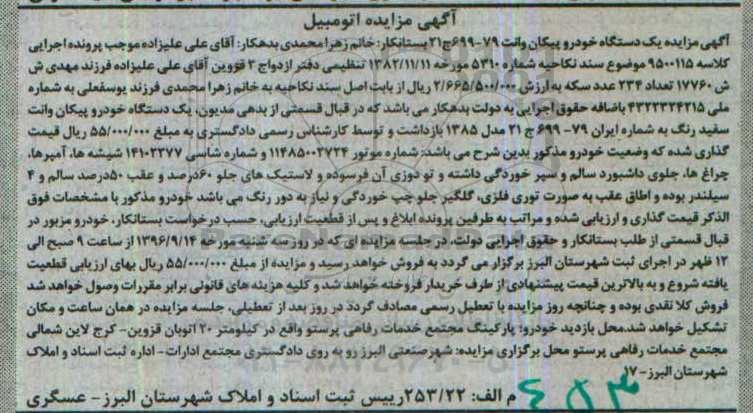 آگهی مزایده اتومبیل
آگهی مزایده یک دستگاه خودرو پیکان وانت ۷۹-۶۹۹ج۲۱ بستانکار: خانم زهرا محمدی بدهکار: آقای علی علیزاده موجب پرونده اجرایی
کلاسه ۹۵۰۰۱۱۵ موضوع سند نکاحیه شماره ۵۳۱۰ مورخه ۱۳۸۲/۱۱/۱۱ تنظیمی دفتر ازدواج ۳ قزوین آقای علی علیزاده فرزند مهدی ش
ش ۱۷۷۶۰ تعداد ۲۳۴ عدد سکه به ارزش ۲/۶۶۵/۵۰۰/۰۰۰ ریال از بابت اصل سند نکاحیه به خانم زهرا محمدی فرزند یوسفعلی به شماره
ملی ۴۳۲۲۳۲۴۲۱۵ باضافه حقوق اجرایی به دولت بدهکار می باشد که در قبال قسمتی از بدهی مدیون، یک دستگاه خودرو پیکان وانت
سفید رنگ به شماره ایران ۷۹- ۶۹۹ ج ۲۱ مدل ۱۳۸۵ بازداشت و توسط کارشناس رسمی دادگستری به مبلغ ۵۵/۰۰۰/۰۰۰ ریال قیمت
گذاری شده که وضعیت خودرو مذکور بدین شرح می باشد: شماره موتور ۱۱۴۸۵۰۰۲۷۲۴ و شماره شاسی ۱۴۱۰۲۲۷۷ شیشه ها، آمپرها،
چراغ ها، جلوی داشبورد سالم و سپر خوردگی داشته و تو دوزی آن فرسوده و لاستیک های جلو ۶۰درصد و عقب ۵۰درصد سالم و ۴
سیلندر بوده و اطاق عقب به صورت توری فلزی، گلگیر جلو چپ خوردگی و نیاز به دور رنگ می باشد خودرو مذکور با مشخصات فوق
الذکر قیمت گذاری و ارزیابی شده و مراتب به طرفین پرونده ابلاغ و پس از قطعیت ارزیابی، حسب درخواست بستانکار، خودرو مزبور در
قبال قسمتی از طلب بستانکار و حقوق اجرایی دولت، در جلسه مزایده ای که در روز سه شنبه مورخه ۱۳۹۶/۹/۱۴ از ساعت ۹ صبح الی
۱۲ ظهر در اجرای ثبت شهرستان البرز برگزار می گردد به فروش خواهد رسید و مزایده از مبلغ ۵۵/۰۰۰/۰۰۰ ریال بهای ارزیابی قطعیت
یافته شروع و به بالاترین قیمت پیشنهادی از طرف خریدار فروخته خواهد شد و کلیه هزینه های قانونی برابر مقررات وصول خواهد شد
فروش کلا نقدی بوده و چنانچه روز مزایده با تعطیل رسمی مصادف گردد در روز بعد از تعطیلی، جلسه مزایده در همان ساعت و مکان
تشکیل خواهد شد.محل بازدید خودرو: پارکینگ مجتمع خدمات رفاهی پرستو واقع در کیلومتر ۲۰ اتوبان قزوین- کرج لاین شمالی
مجتمع خدمات رفاهی پرستو محل برگزاری مزایده: شهرصنعتی البرز رو به روی دادگستری مجتمع ادارات- اداره ثبت اسناد و املاک
شهرستان البرز-۱۷
م الف: ۲۵۳/۲۲رییس ثبت اسناد و املاک شهرستان البرز- عسگری